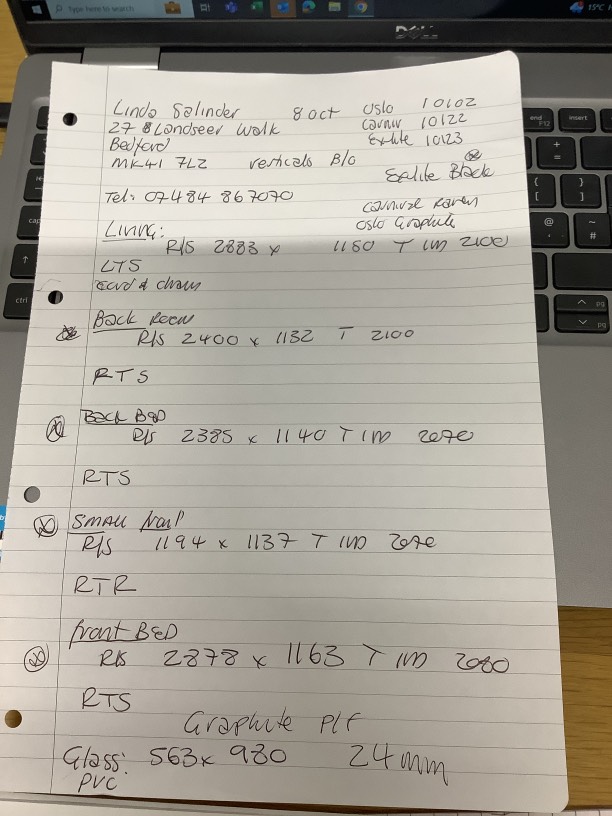 Type here to search
15°C
DELL
Linda Salinder 8 oct Oslo 10102
27 Landseer Walk Carniv 10122
Bedford Exlite 10123
MK41 7LZ verticals B/O
Exlite Black
Tel: 07484 867070
Carnival Raven
Oslo Graphite
Living:
R/S 2883 x 1150 T IM 2100
LTS
cord & chain
Back Room
R/S 2400 x 1132 T 2100
RTS
Back BED
R/S 2385 x 1140 T IM 2070
RTS
SMALL front
R/S 1194 x 1137 T IM 2070
RTR
front BED
R/S 2878 x 1163 T IM 2080
RTS
Graphite PLF
Glass: 563 x 980 24mm
PVC
end
F12
insert
ctrl